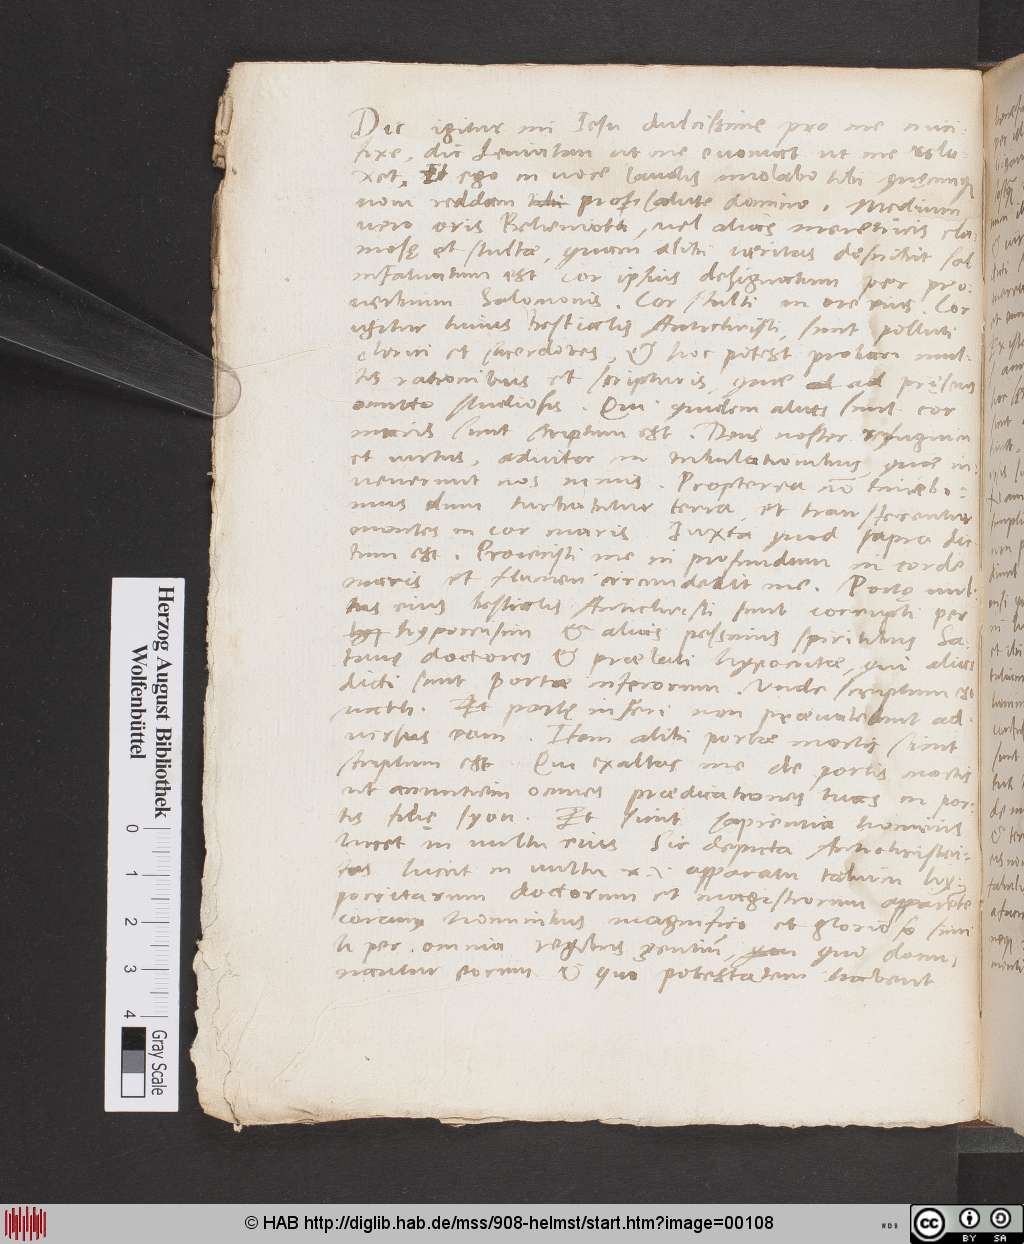 Dic igitur mi Iesu dulcissime pro me cruci-
fixe, dic Leviatan ut me evomat ut me
et ego in voce laudis immolabo tibi quęcunque
novi reddam tibi pro salute domino. Medium
vero oris Behemoth, vel alias meretricis cla-
mosę et stultæ, quam alibi veritas describit sal
infatuatum est cor ipsius designatum per pro-
verbium Salomonis. Cor stulti in ore eius. Cor
igitur huius bestialis Antichristi, sunt polluti
clerici et sacerdotes, & hoc potest probari mul-
tis rationibus et scripturis, quae ad pręsens
omitto studiosis. Qui quidem alias sunt cor
maris sicut scriptum est. Deus noster refugium
et virtus, adiutor in tribulationibus, quae in-
venerunt nos nimis. Propterea nō timebi-
mus dum turbabitur terra, et transferentur
montes in cor maris Iuxta quod supra dic-
tum est. Proiecisti me in profundum in corde
maris et flumen circumdedit me. Porro vul-
tus eius bestialis Antichristi sunt corrupti per
hypocrisim & aliis pessimis spiritibus Sa-
tanę doctores & prælati hypocritæ, qui alias
dicti sunt portæ inferorum. Unde scriptum est
Et portę inferi non prævalebunt ad-
versus eam. Item alibi portæ mortis sicut
scriptum est Qui exaltas me de portis mortis
ut annuntiem omnes prædicationes tuas in por-
tis filię syon. Et sicut sapientia hominis
lucet in vultu eius Sic depicta Antichristei-
tas lucet in vultu et apparatu talium hy-
pocritarum doctorum et magistrorum apparente
coram hominibus magnifico et glorioso simi
li per omnia regibus gentiū, qui domi-
nantur eorum & qui potestatem habent
Herzog August Bibliothek
Wolfenbüttel
0 1 2 3 4
Gray Scale
© HAB http://diglib.hab.de/mss/908-helmst/start.htm?image=00108
WDB
cc BY SA